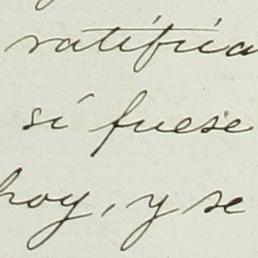 ratifica
si fuese
hoy, y se